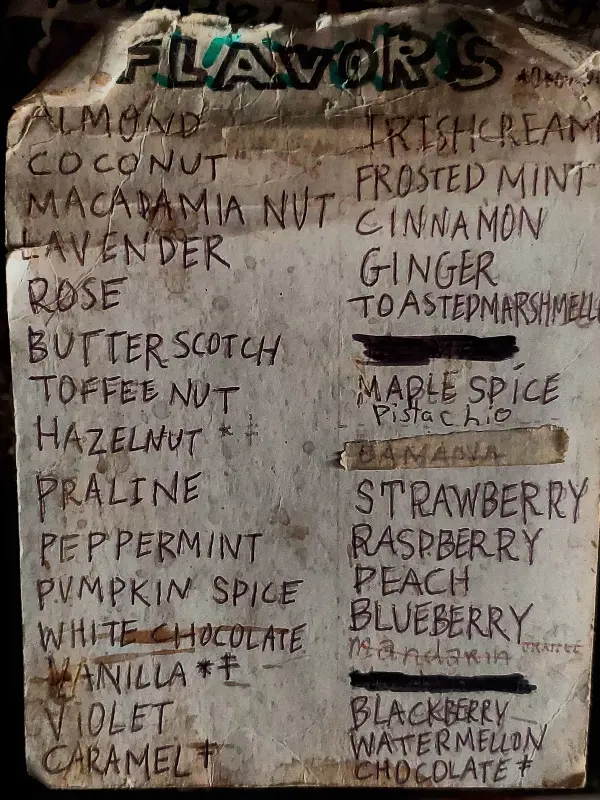 FLAVORS
ALMOND
COCONUT
MACADAMIA NUT
LAVENDER
ROSE
BUTTERSCOTCH
TOFFEE NUT
HAZELNUT *‡
PRALINE
PEPPERMINT
PUMPKIN SPICE
WHITE CHOCOLATE
VANILLA *‡
VIOLET
CARAMEL ‡
IRISHCREAM
FROSTED MINT
CINNAMON
GINGER
TOASTEDMARSHMELLO
MAPLE SPICE
Pistachio
BANANA
STRAWBERRY
RASPBERRY
PEACH
BLUEBERRY
Mandarin ORANGE
BLACKBERRY
WATERMELLON
CHOCOLATE ‡